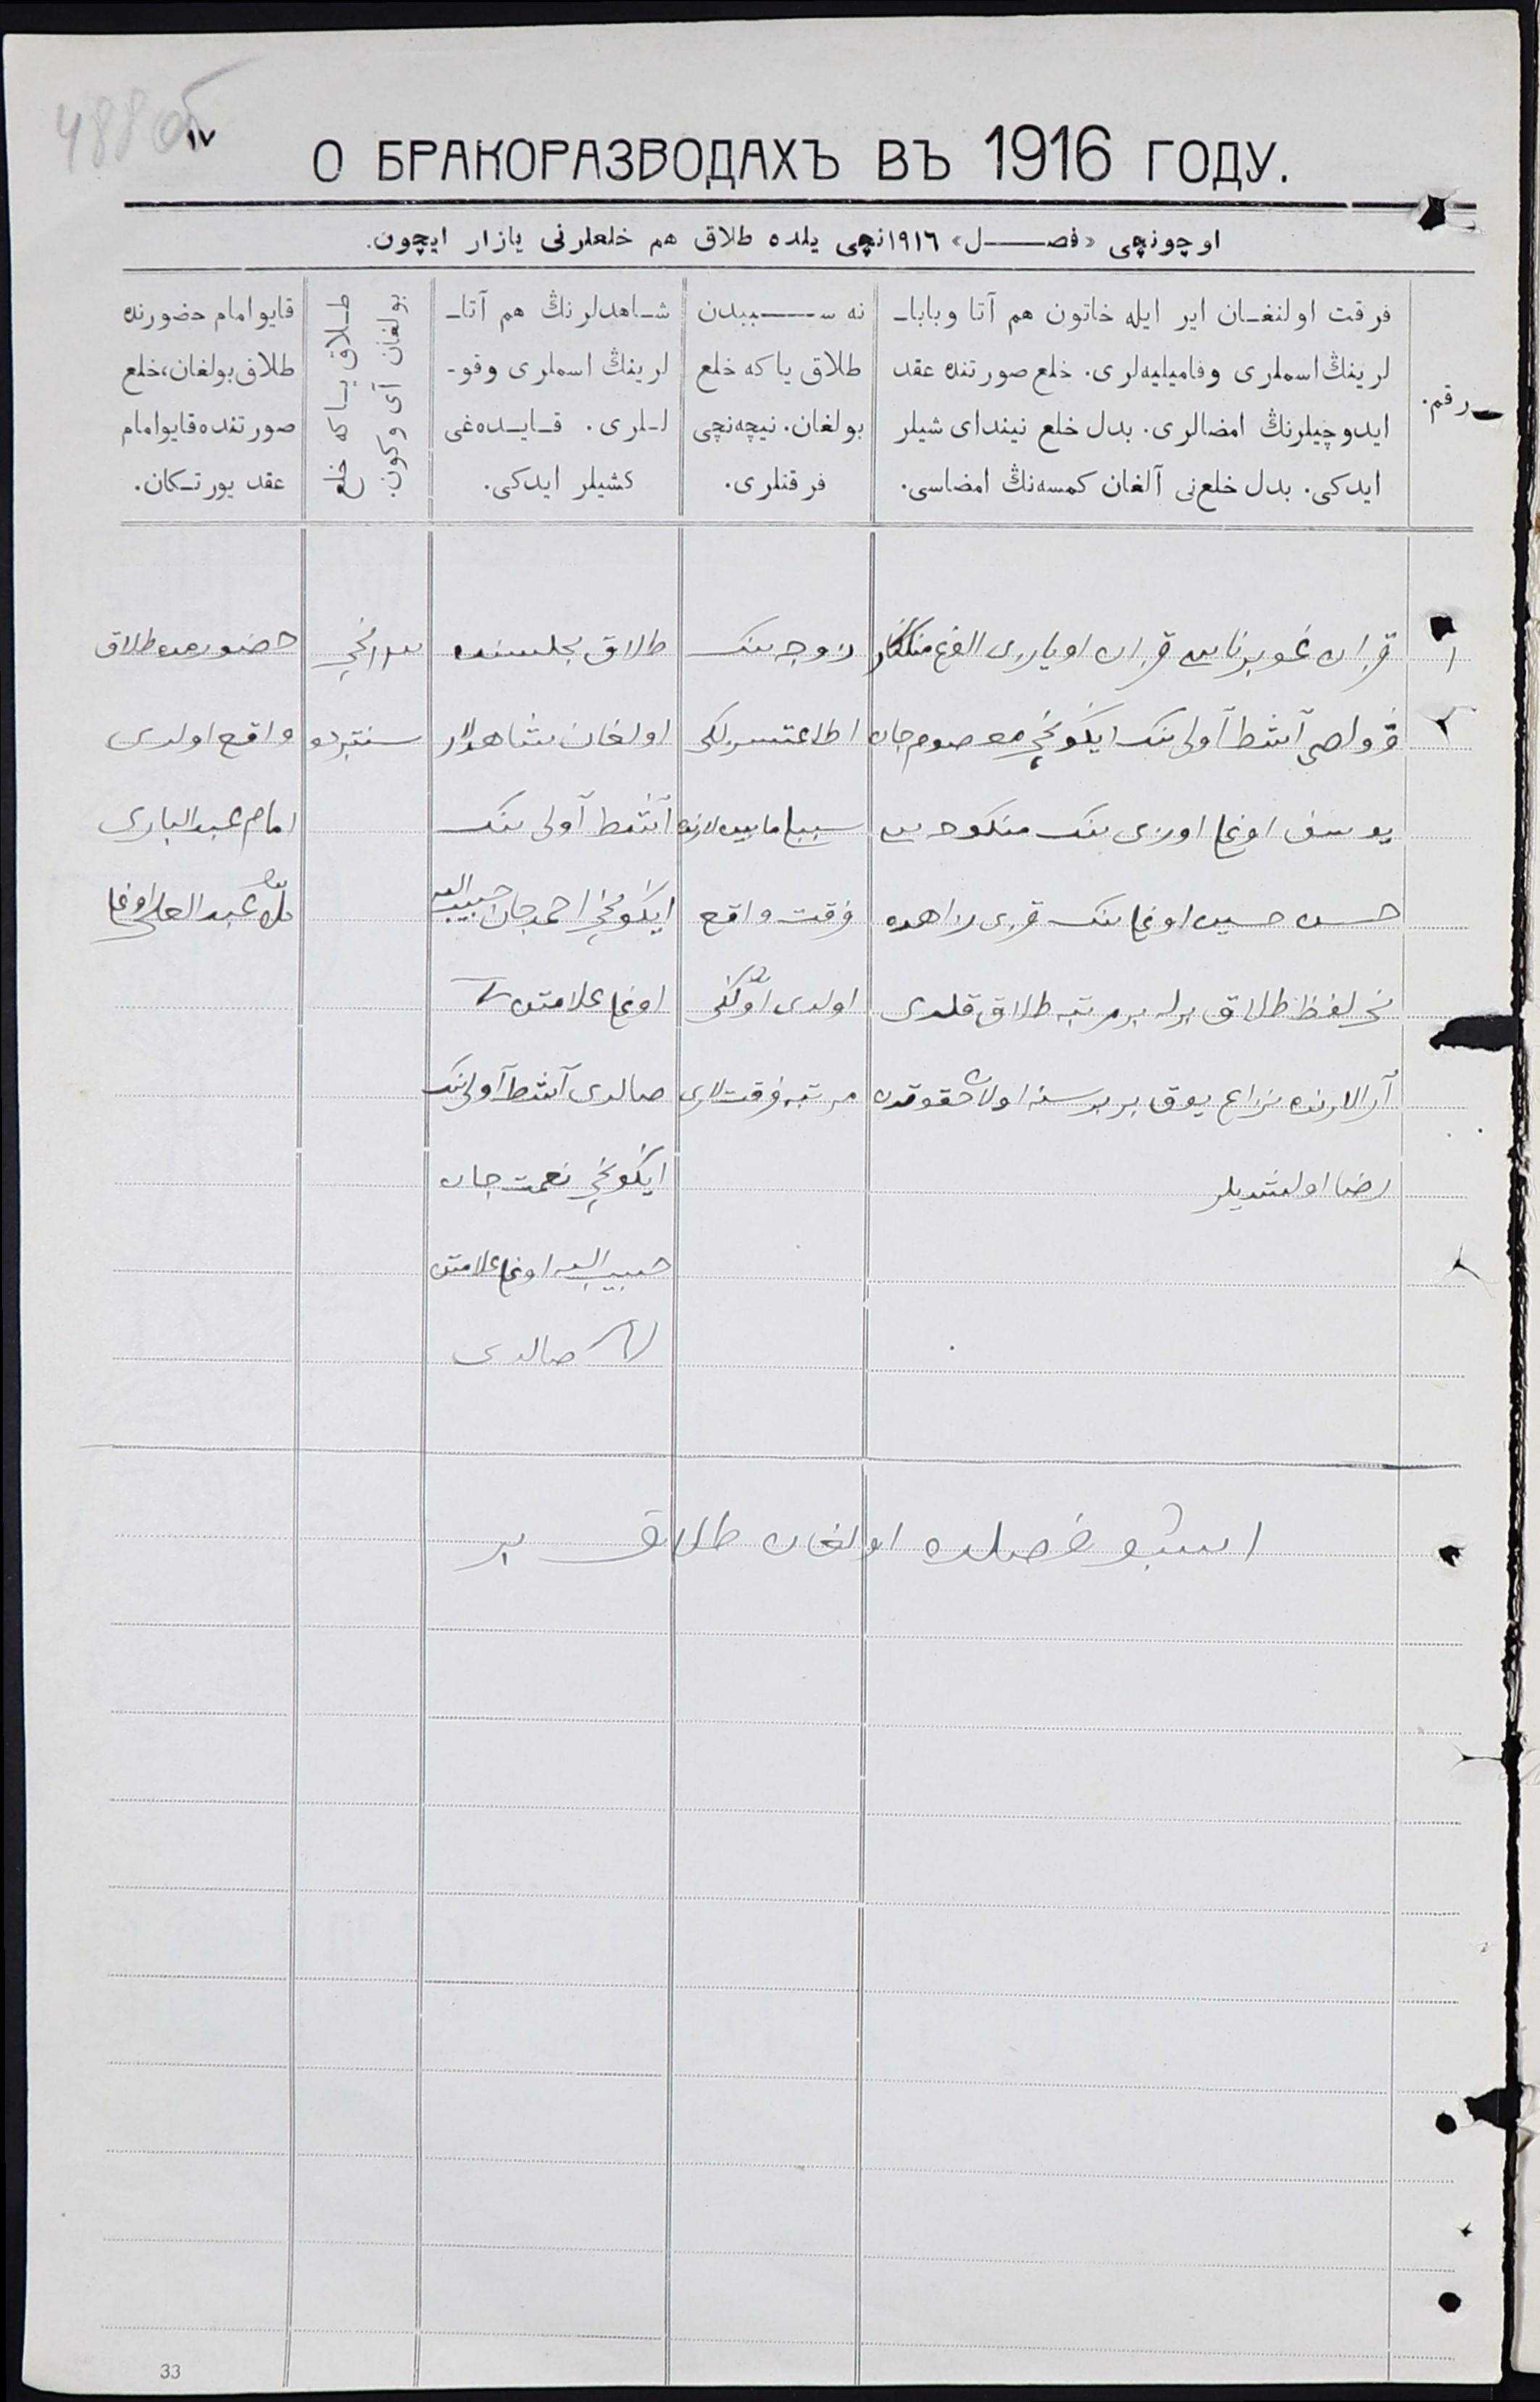 488 об
١٧
О БРАКОРАЗВОДАХЪ ВЪ 1916 ГОДУ.
اوچونچی «فصـــل» ١٩١٦نچی یلده طلاق هم خلعلرنی یازار ایچون.
رقم.
فرقت اولنغـان ایر ایله خاتون هم آتا وباباـ
لرینڭ اسملری وفامیلیه‌لری. خلع صورتنده عقد
ایدوچیلرنڭ امضالری. بدل خلع نیندای شیلر
ایدکی. بدل خلع‌نی آلغان کمسه‌نڭ امضاسی.
نه ســـببدن
طلاق یاکه خلع
بولغان. نیچه‌نچی
فرقتلری.
شـاهدلرنڭ هم آتاـ
لرینڭ اسملری وقوـ
لـلری. قـایـده‌غی
کشیلر ایدکی.
طـلاق یـاکه خلع
بولغان آی وکون.
قایو امام حضورنده
طلاق بولغان، خلع
صورتنده قایو امام
عقد یورتـکان.
١
قزان غوبرناسی قزان اویازی الوغ
قولصی آشط آولی ننک ایکونچی معصوم جان
یوسف اوغلی ننک منکوحه سی
حسن حسین اوغلی ننک قزی زاهده
نی لفظ طلاق برله بر مرتبه طلاق قلدی
آرالارنده نزاع یوق بر برسنه اولان حقوقدن
رضا اولشدیلر
زوجه ننک
اطاعتسزلکی
سببلی مابینلارنده
فرقت واقع
اولدی اولکی
مرتبه فرقتلاری
طلاق مجلسنده
اولغان شاهدلار
آشط آولی ننک
ایکونچی احمدجان حبیب الله
اوغلی علامتن
صالدی آشط آولی ننک
ایکونچی نعمت جان
حبیب الله اوغلی علامتن
صالدی
سنتبرده
حضورمده طلاق
واقع اولدی
امام عبدالباری
ملا عبدالعلی اوغلی
اشبو فصلده اولغان طلاق بر
33